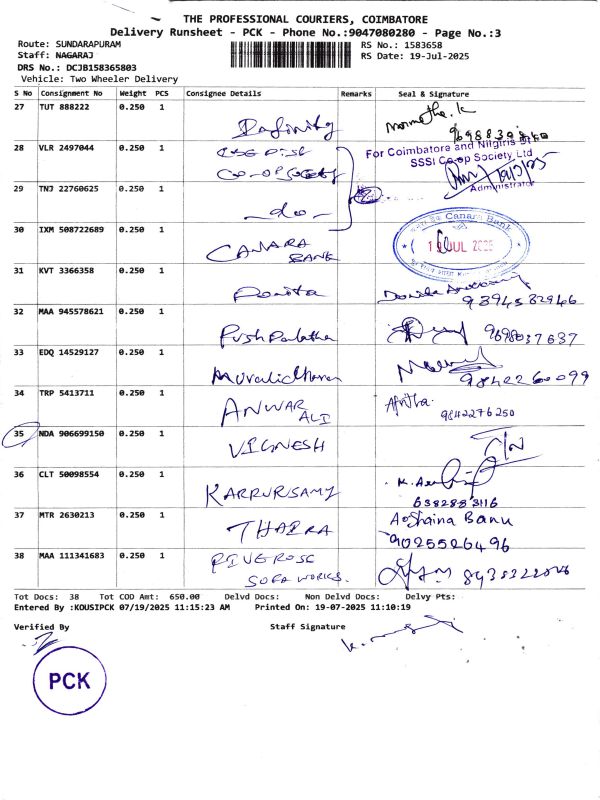 THE PROFESSIONAL COURIERS, COIMBATORE
Delivery Runsheet - PCK - Phone No.:9047080280 - Page No.:3
Route: SUNDARAPURAM
RS No.: 1583658
Staff: NAGARAJ
RS Date: 19-Jul-2025
DRS No.: DCJB158365803
Vehicle: Two Wheeler Delivery
S No Consignment No Weight PCS Consignee Details Remarks Seal & Signature
27 TUT 888222 0.250 1
28 VLR 2497044 0.250 1
CO-OP Society
For Coimbatore and Nilgiris
SSSI Co-op Society Ltd
Administrator
29 TNJ 22760625 0.250 1
-do-
30 IXM 508722689 0.250 1
CANARA
BANK
Canara Bank
19 JUL 2025
31 KVT 3366358 0.250 1
9394582946
32 MAA 945578621 0.250 1
Pushpalatha
9698037637
33 EDQ 14529127 0.250 1
Muralidharan
9842260099
34 TRP 5413711 0.250 1
ANWAR
ALI
9842276250
35 NDA 906699150 0.250 1
VIGNESH
36 CLT 50098554 0.250 1
KARRURISAMY
6382883116
37 MTR 2630213 0.250 1
THAIRA
Aoshaina Banu
9025526496
38 MAA 111341683 0.250 1
RIVEROSE
SOFA WORKS.
Tot Docs: 38 Tot COD Amt: 650.00 Delvd Docs: Non Delvd Docs: Delvy Pts:
Entered By :KOUSIPCK 07/19/2025 11:15:23 AM Printed On: 19-07-2025 11:10:19
Verified By Staff Signature
PCK